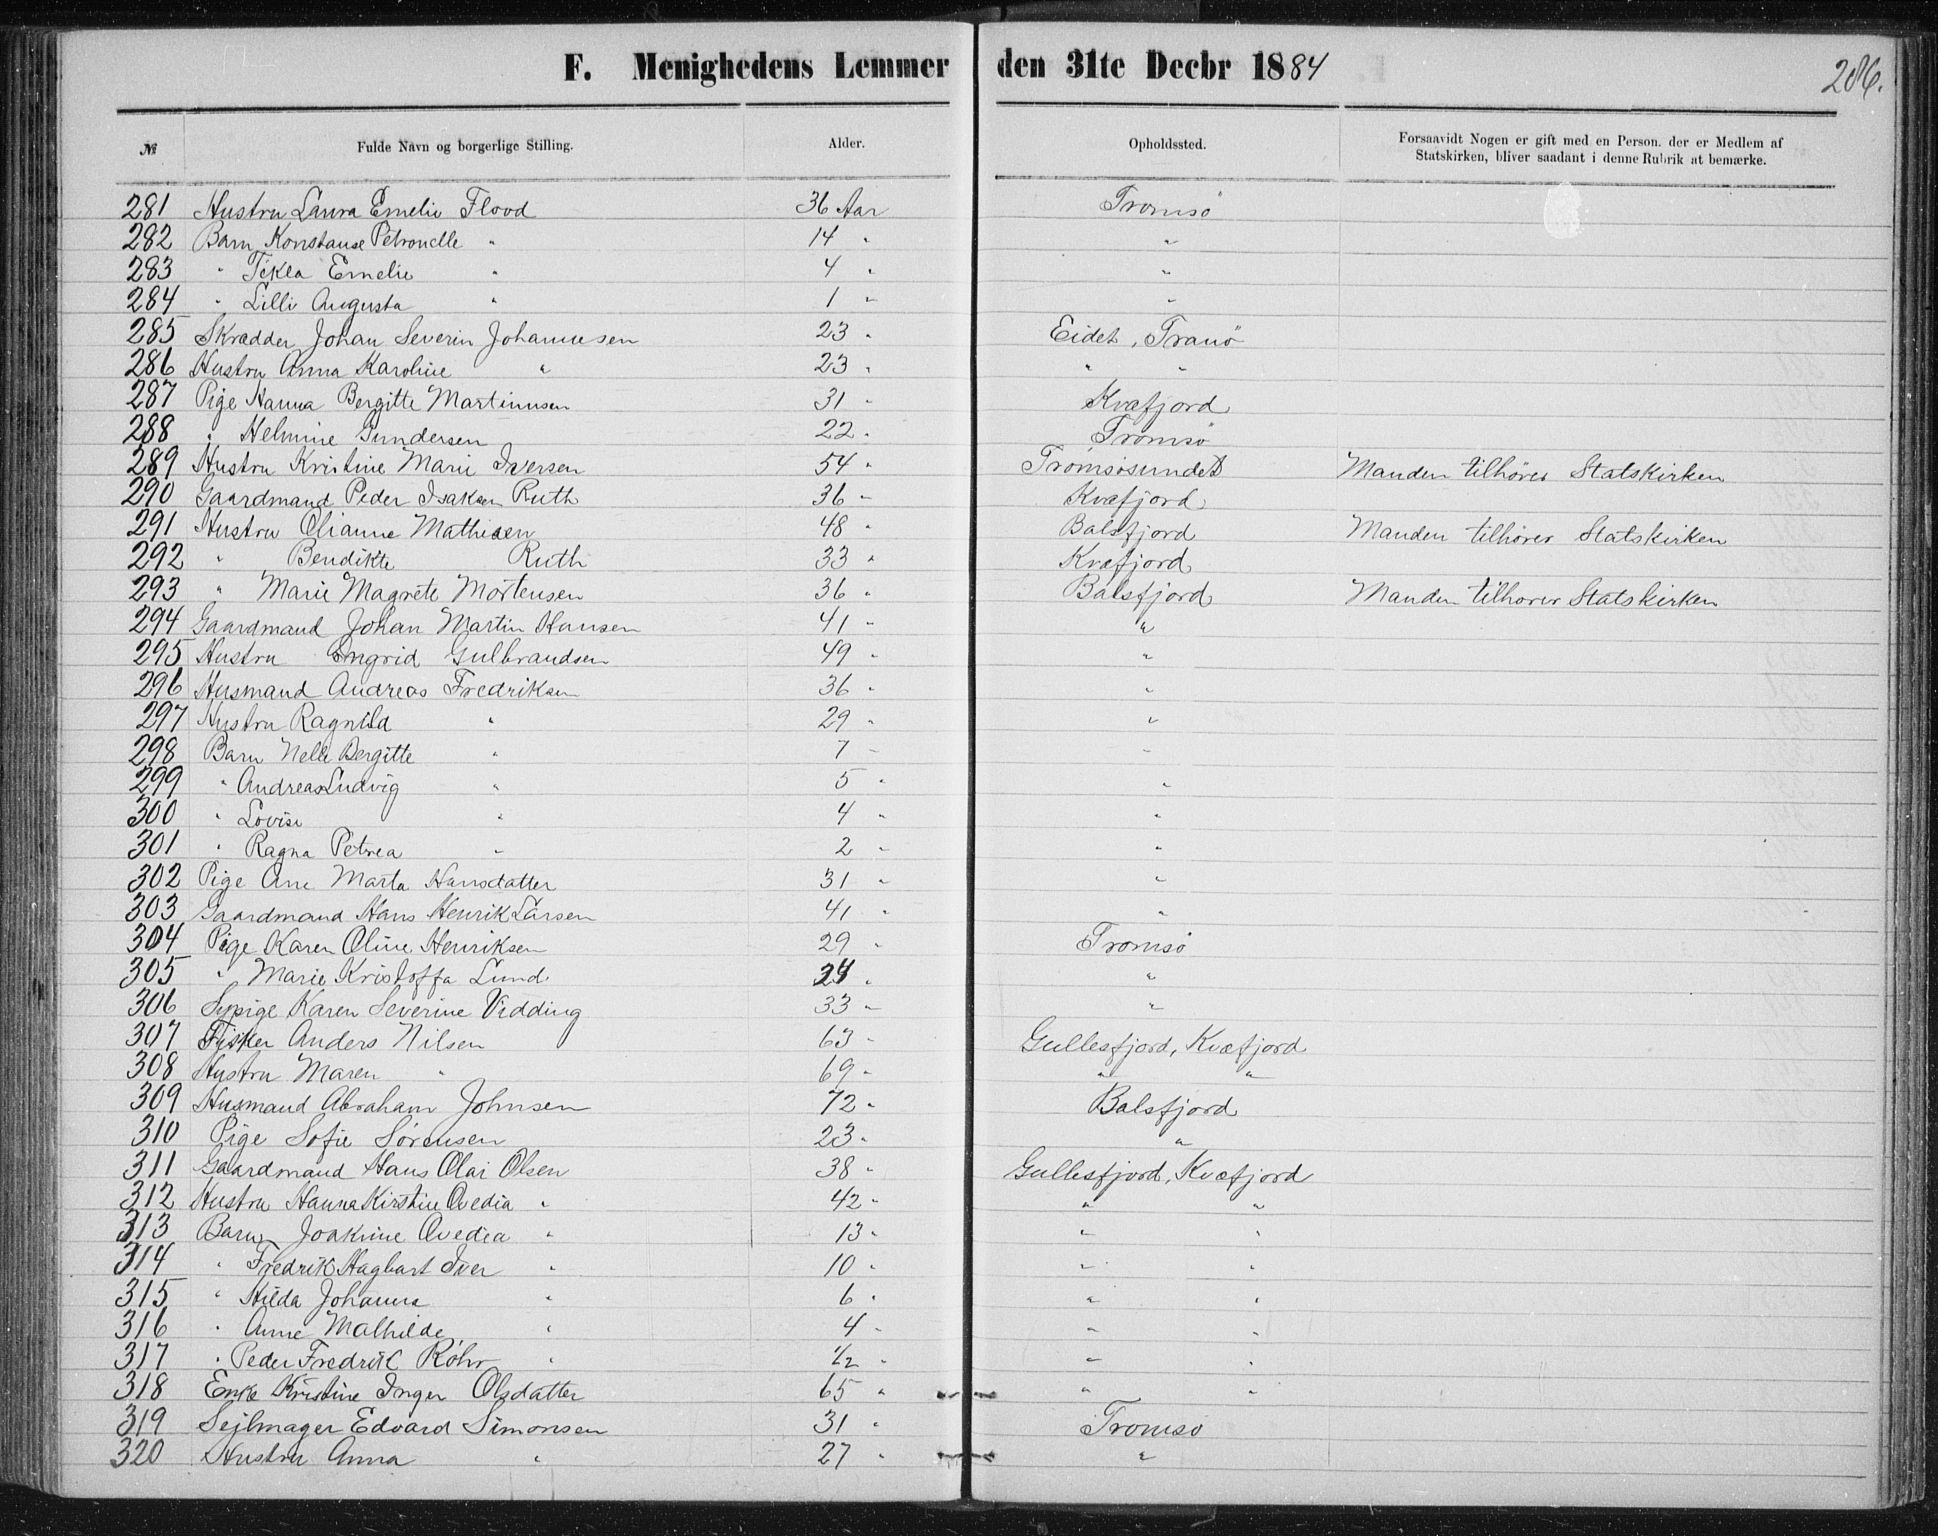 F. Menighedens Lemmer den 31te Decbr 1884
286.
№ Fulde Navn og borgerlige Stilling. Alder. Opholdssted. Forsaavidt Nogen er gift med en Person. der er Medlem af
Statskirken, bliver saadant i denne Rubrik at bemærke.
281 Hustru Laura Emelie Flood 36 Aar Tromsö
282 Barn Konstanse Petronelle " 14 " "
283 " Tekla Emelie " 4 " "
284 " Lilli Augusta " 1 " "
285 Skrædder Johan Severin Johannesen 23 " Eidet, Tranö
286 Hustru Anna Karoline " 23 " " "
287 Pige Hanna Bergitte Martinusen 31 " Kvæfjord
288 " Helmine Gundersen 22 " Tromsö
289 Hustru Kristine Marie Iversen 54 " Tromsøsundet Manden tilhører Statskirken
290 Gaardmand Peder Isaksen Ruth 36 " Kvæfjord
291 Hustru Olianne Mathisen 48 " Balsfjord Manden tilhører Statskirken
292 " Bendikte Ruth 33 " Kvæfjord
293 " Marie Magrete Mortensen 36 " Balsfjord Manden tilhorer Statskirken
294 Gaardmand Johan Martin Hansen 41 " "
295 Hustru Ingrid Gulbrandsen 49 " "
296 Husmand Andreas Fredriksen 36 " "
297 Hustru Ragnild " 29 " "
298 Barn Nelle Bergitte " 7 " "
299 " Andreas Ludvig " 5 " "
300 " Lovise " 4 " "
301 " Ragna Petrea " 2 " "
302 Pige Ane Marta Hansdatter 31 " "
303 Gaardmand Hans Henrik Larsen 41 " "
304 Pige Karen Oline Henriksen 29 " Tromsö
305 " Marie Kristoffa Lund " "
306 Sypige Karen Severine Vidding 33 " "
307 Fisker Anders Nilsen 63 " Gullesfjord, Kvæfjord
308 Hustru Maren " 69 " " "
309 Husmand Abraham Johnsen 72 " Balsfjord
310 Pige Sofie Sørensen 23 " "
311 Gaardmand Hans Olai Olsen 38 " Gullesfjord, Kvæfjord
312 Hustru Hanna Kirstine Ovedia " 42 " " "
313 Barn Joakime Ovedia " 13 " " "
314 " Fredrik Hagbart Iver " 10 " " "
315 " Hilda Johanna " 6 " " "
316 " Anne Mathilde " 4 " " "
317 " Peder Fredrik Röhr " ½ " " "
318 Enke Kristine Inger Olsdatter 65 " " "
319 Sejlmager Edvard Simonsen 31 " Tromsö
320 Hustru Anna " 27 " "